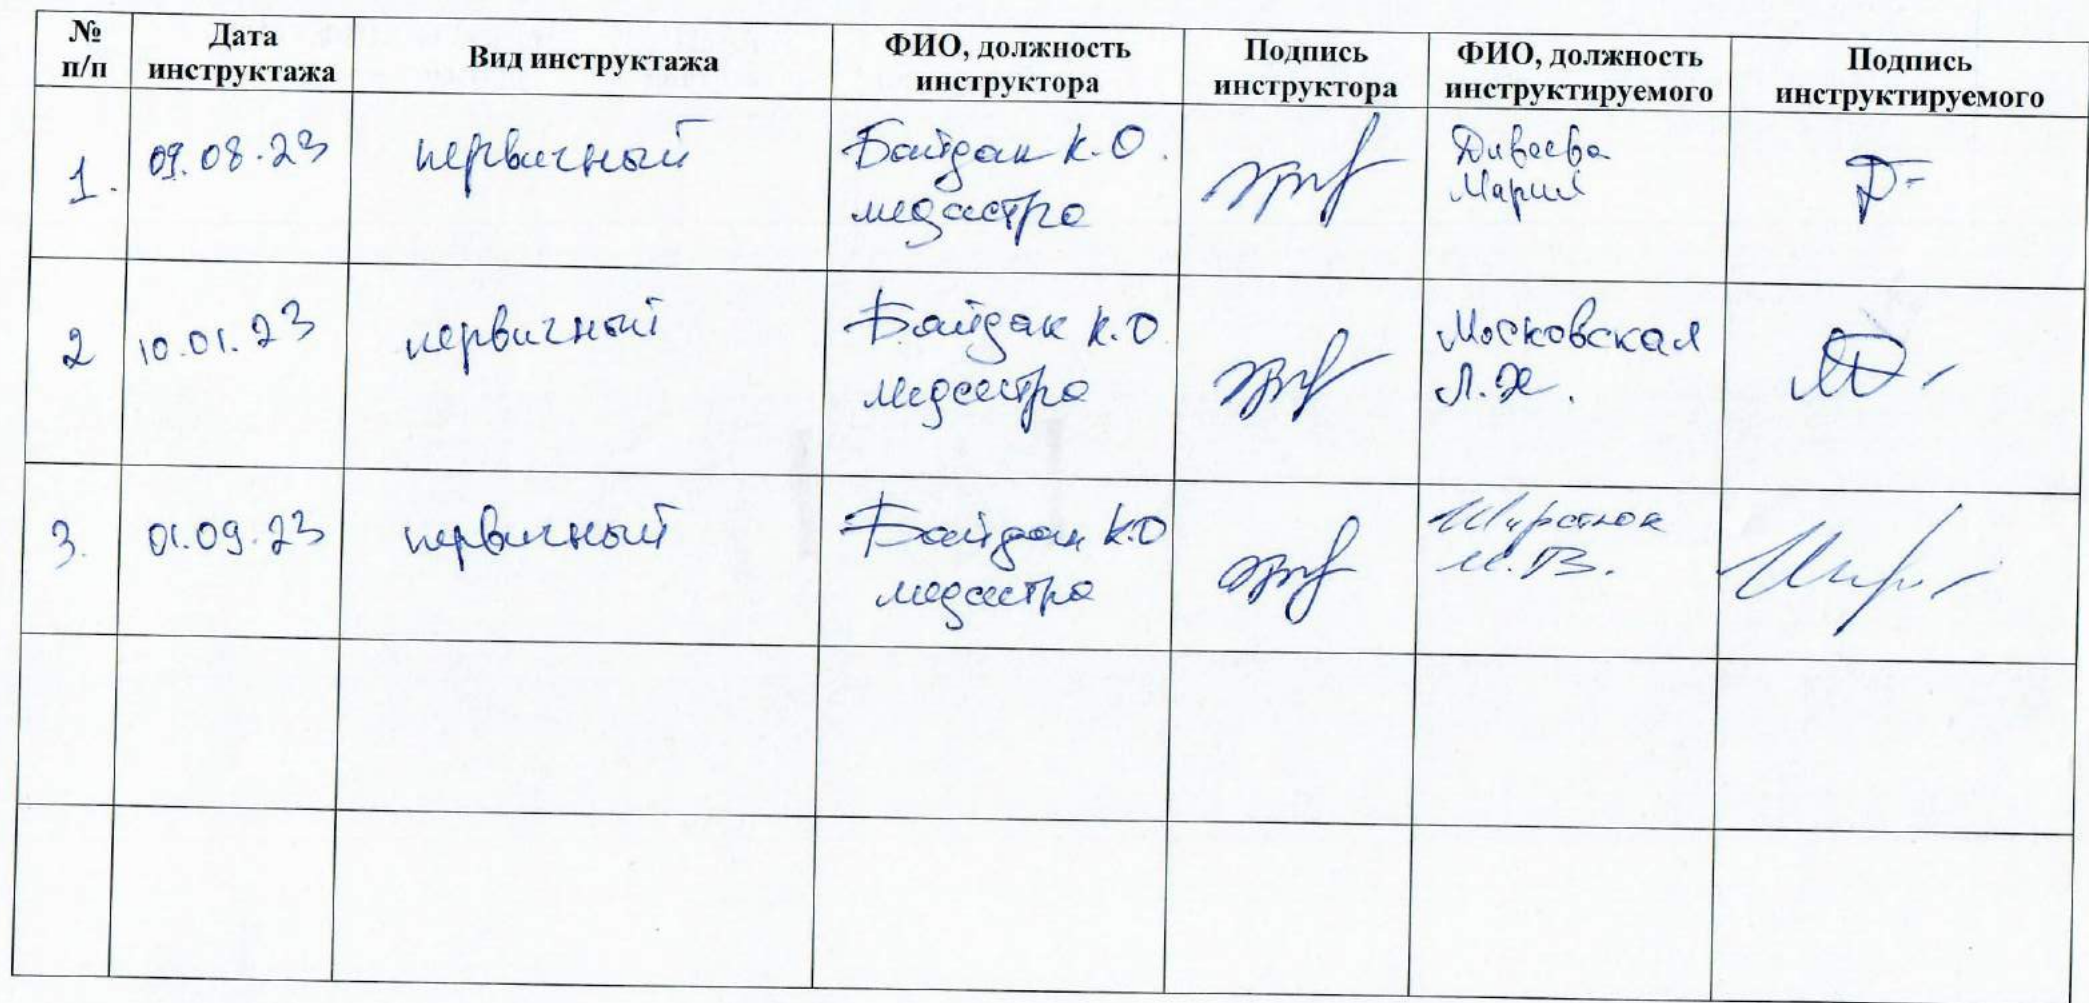 № п/п
Дата инструктажа
Вид инструктажа
ФИО, должность инструктора
Подпись инструктора
ФИО, должность инструктируемого
Подпись инструктируемого
1.
09.08.23
первичный
Байдак К.О.
медсестра
Диваева
Мария
2
10.01.23
первичный
Байдак К.О
медсестра
Московская
Л.Х.
3.
01.09.23
первичный
Байдак К.О
медсестра
М.В.